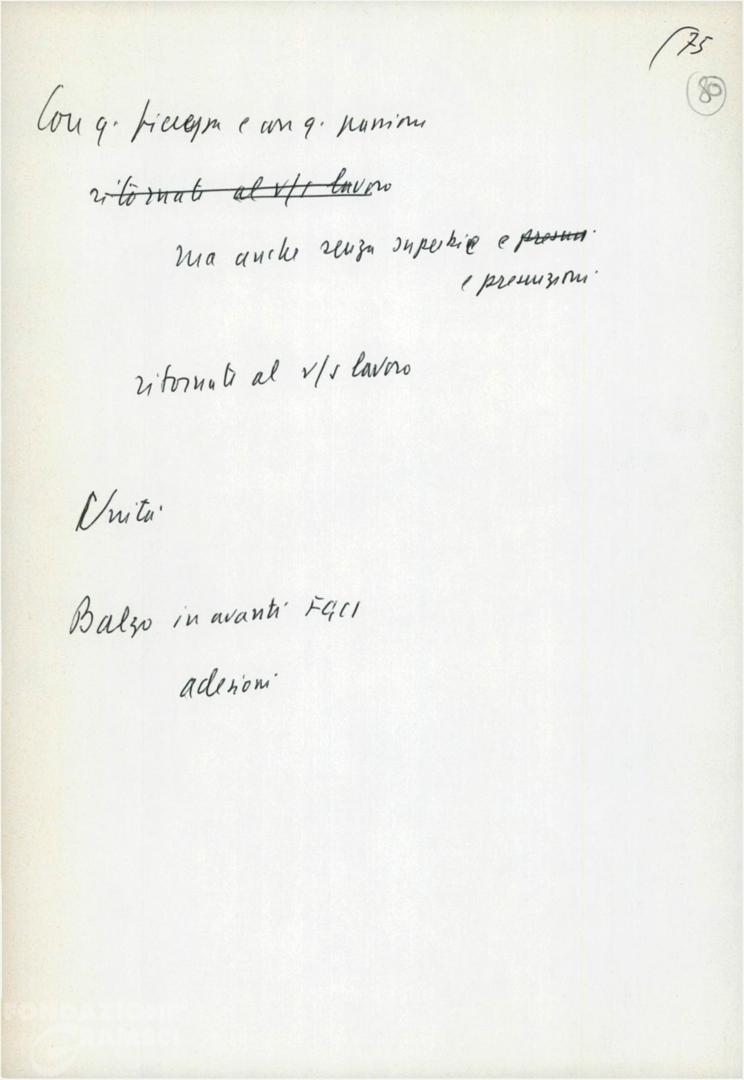 75
80
Con q. fierezza e con q. passione
ritornate al v/s lavoro
ma anche senza superbie e presun
e presunzioni
ritornate al v/s lavoro
Unità
Balzo in avanti FGCI
adesioni
FONDAZIONE
GRAMSCI